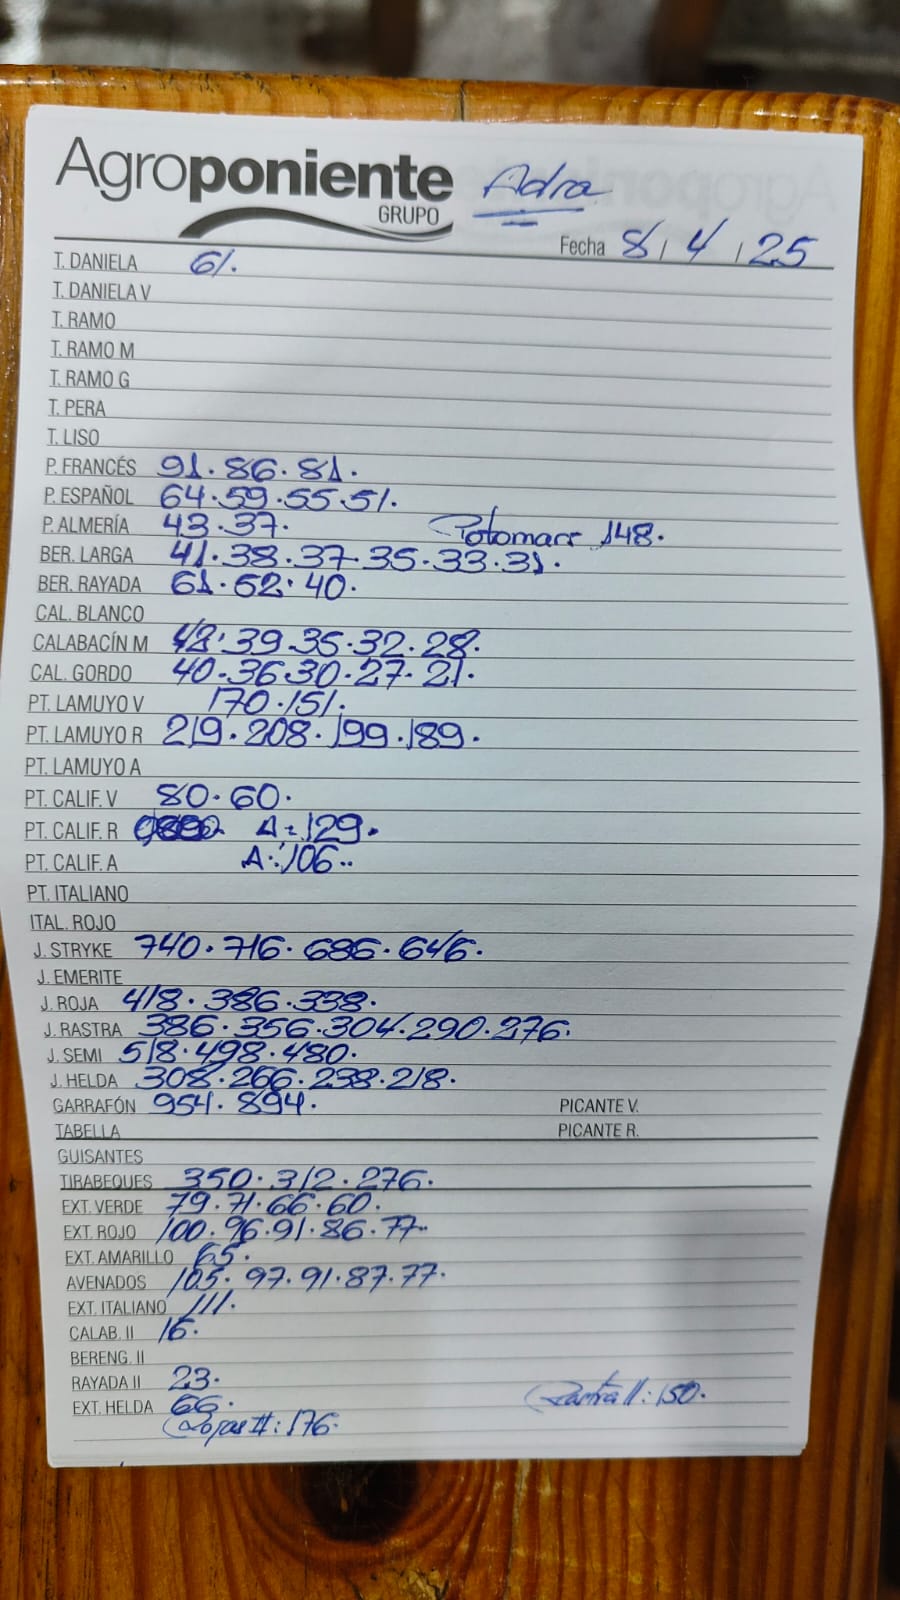 Agroponiente Adra
GRUPO
Fecha 8/4/25
T. DANIELA 61.
T. DANIELA V
T. RAMO
T. RAMO M
T. RAMO G
T. PERA
T. LISO
P. FRANCÉS 91.86.81.
P. ESPAÑOL 64.59.55.51.
P. ALMERÍA 43.37. Potomarr 148.
BER. LARGA 41.38.37.35.33.31.
BER. RAYADA 61.52.40.
CAL. BLANCO
CALABACÍN M 42.39.35.32.28.
CAL. GORDO 40.36.30.27.21.
PT. LAMUYO V 170.151.
PT. LAMUYO R 219.208.199.189.
PT. LAMUYO A
PT. CALIF. V 80.60.
PT. CALIF. R A: 129.
PT. CALIF. A A: 106..
PT. ITALIANO
ITAL. ROJO
J. STRYKE 740.716.686.646.
J. EMERITE
J. ROJA 418.386.338.
J. RASTRA 386.356.304.290.276.
J. SEMI 518.498.480.
J. HELDA 308.266.238.218.
GARRAFÓN 954.894. PICANTE V.
TABELLA PICANTE R.
GUISANTES
TIRABEQUES 350.312.276.
EXT. VERDE 79.71.66.60.
EXT. ROJO 100.96.91.86.77.
EXT. AMARILLO 65.
AVENADOS 105.97.91.87.77.
EXT. ITALIANO 111.
CALAB. II 16.
BERENG. II
RAYADA II 23. Rastra II: 150.
EXT. HELDA 66.
Rojas II: 176.